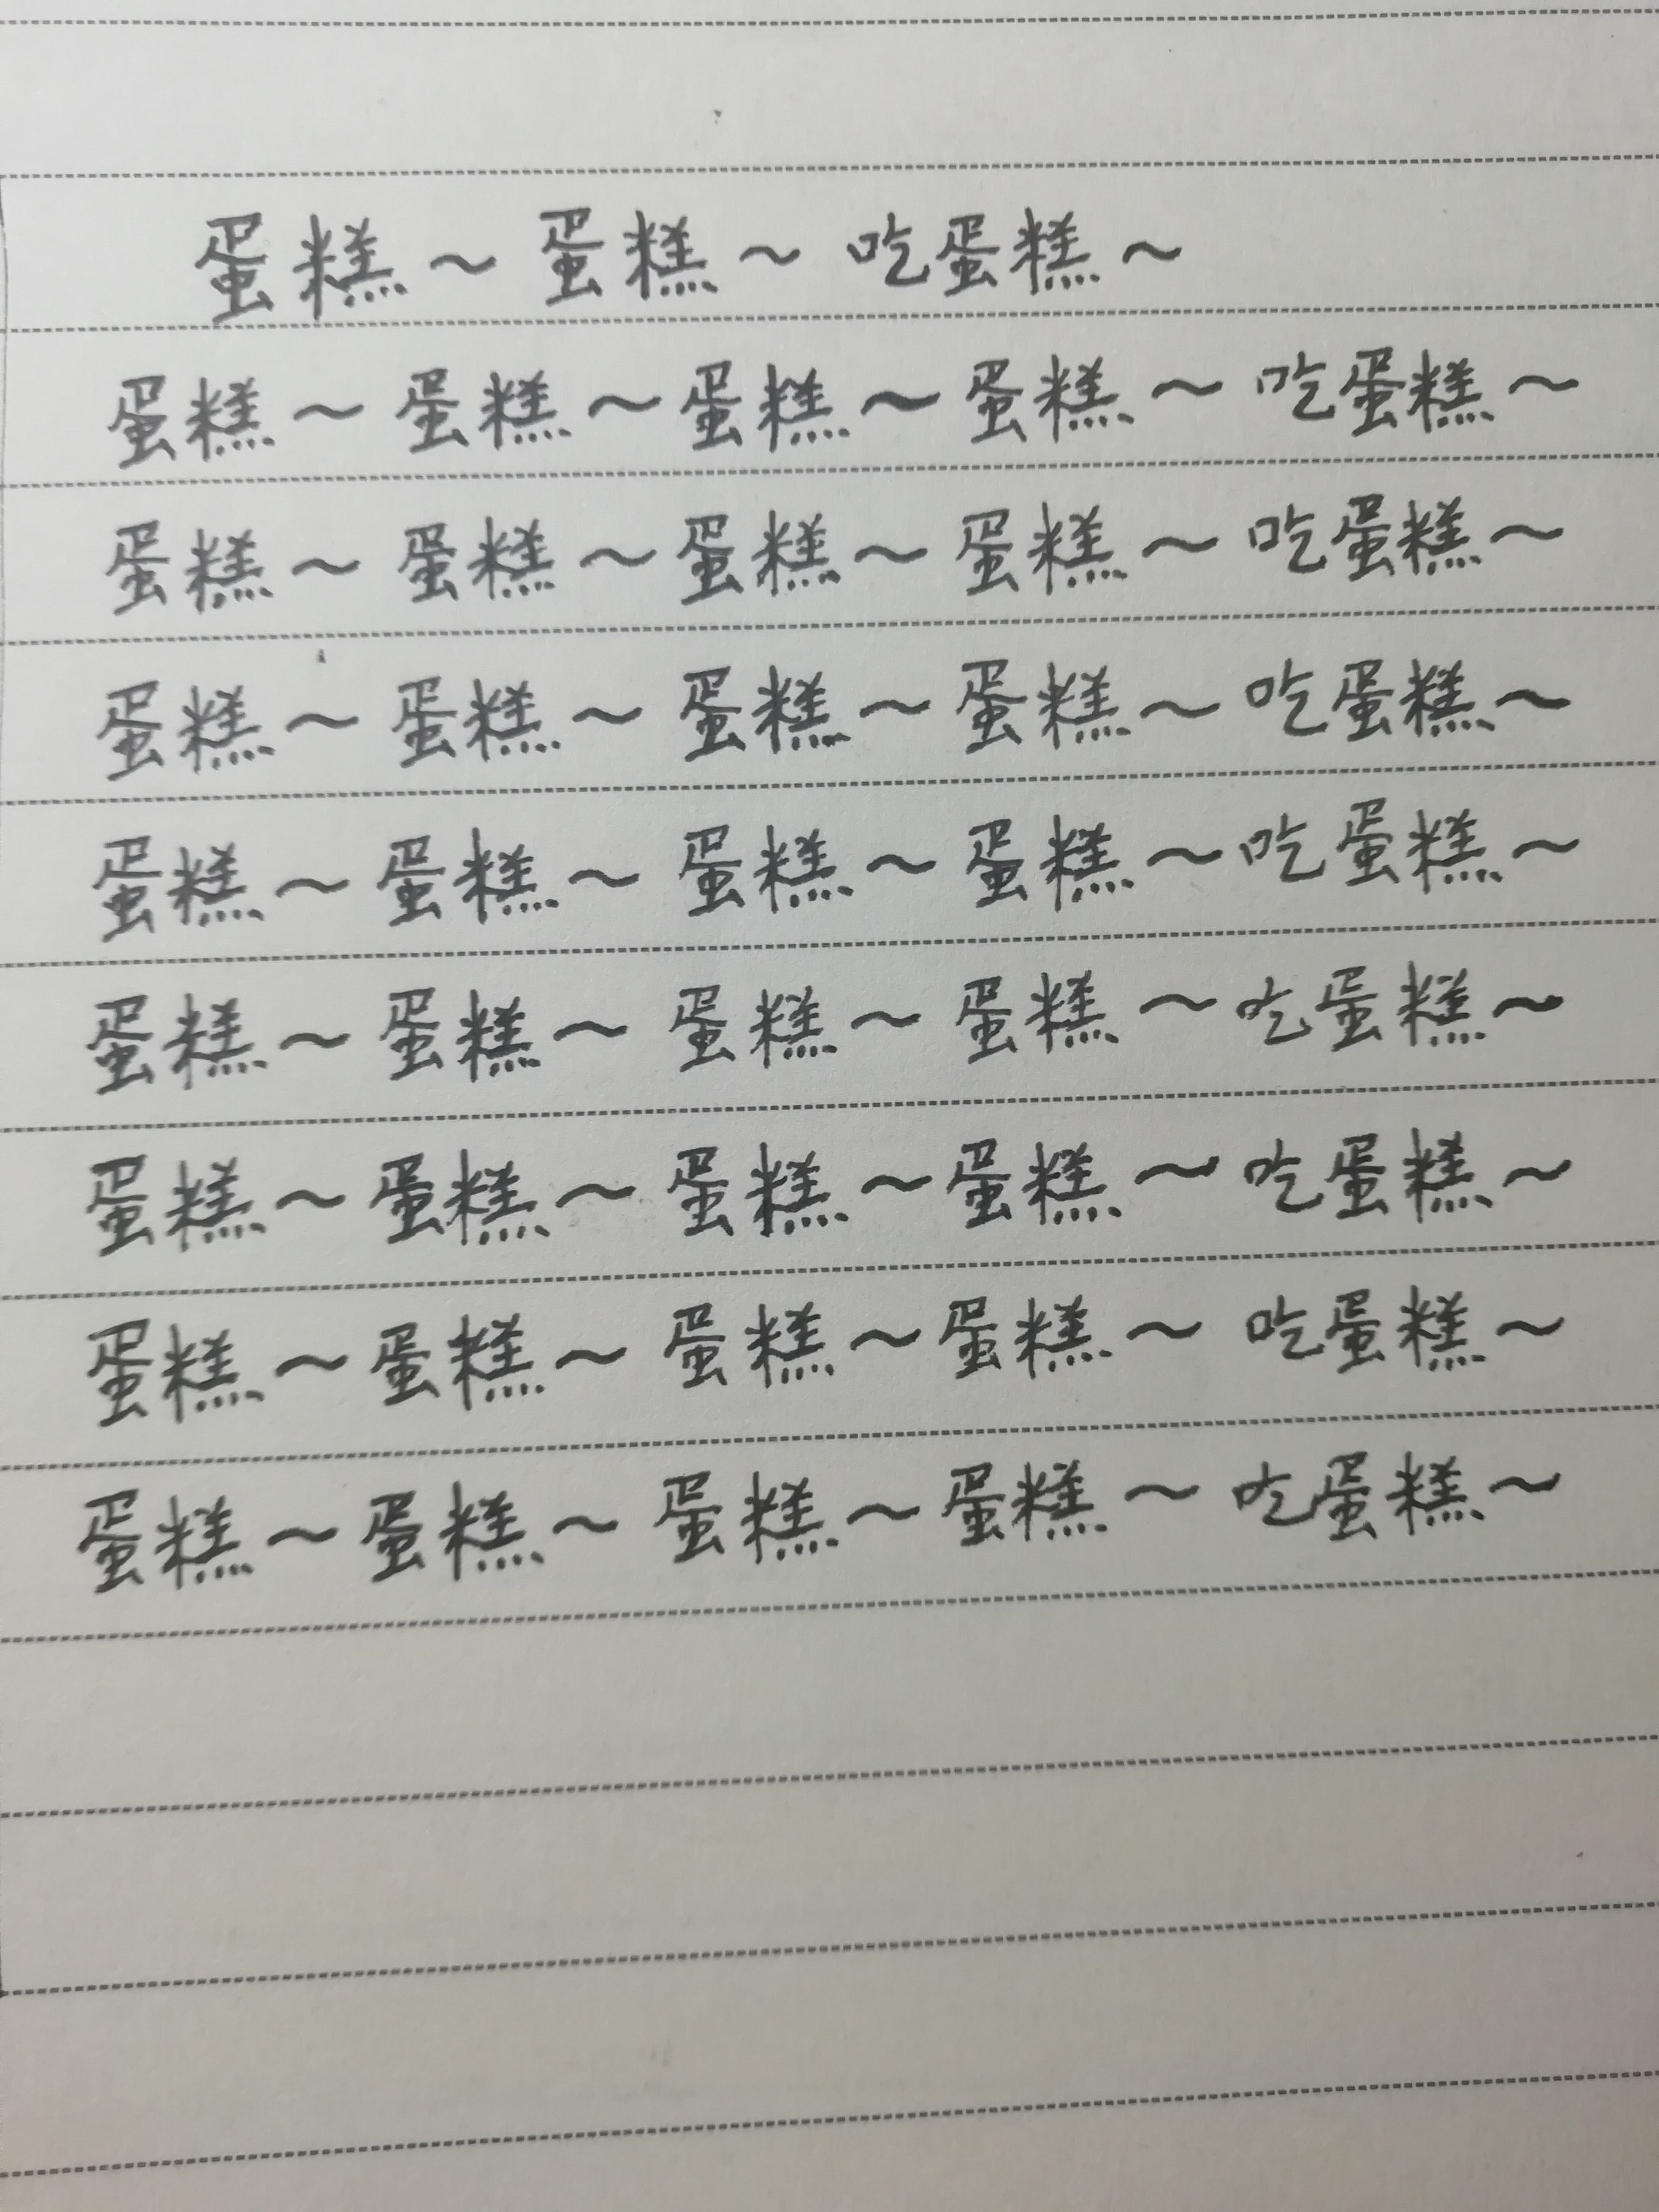 蛋糕～蛋糕～吃蛋糕～
蛋糕～蛋糕～蛋糕～蛋糕～吃蛋糕～
蛋糕～蛋糕～蛋糕～蛋糕～吃蛋糕～
蛋糕～蛋糕～蛋糕～蛋糕～吃蛋糕～
蛋糕～蛋糕～蛋糕～蛋糕～吃蛋糕～
蛋糕～蛋糕～蛋糕～蛋糕～吃蛋糕～
蛋糕～蛋糕～蛋糕～蛋糕～吃蛋糕～
蛋糕～蛋糕～蛋糕～蛋糕～吃蛋糕～
蛋糕～蛋糕～蛋糕～蛋糕～吃蛋糕～